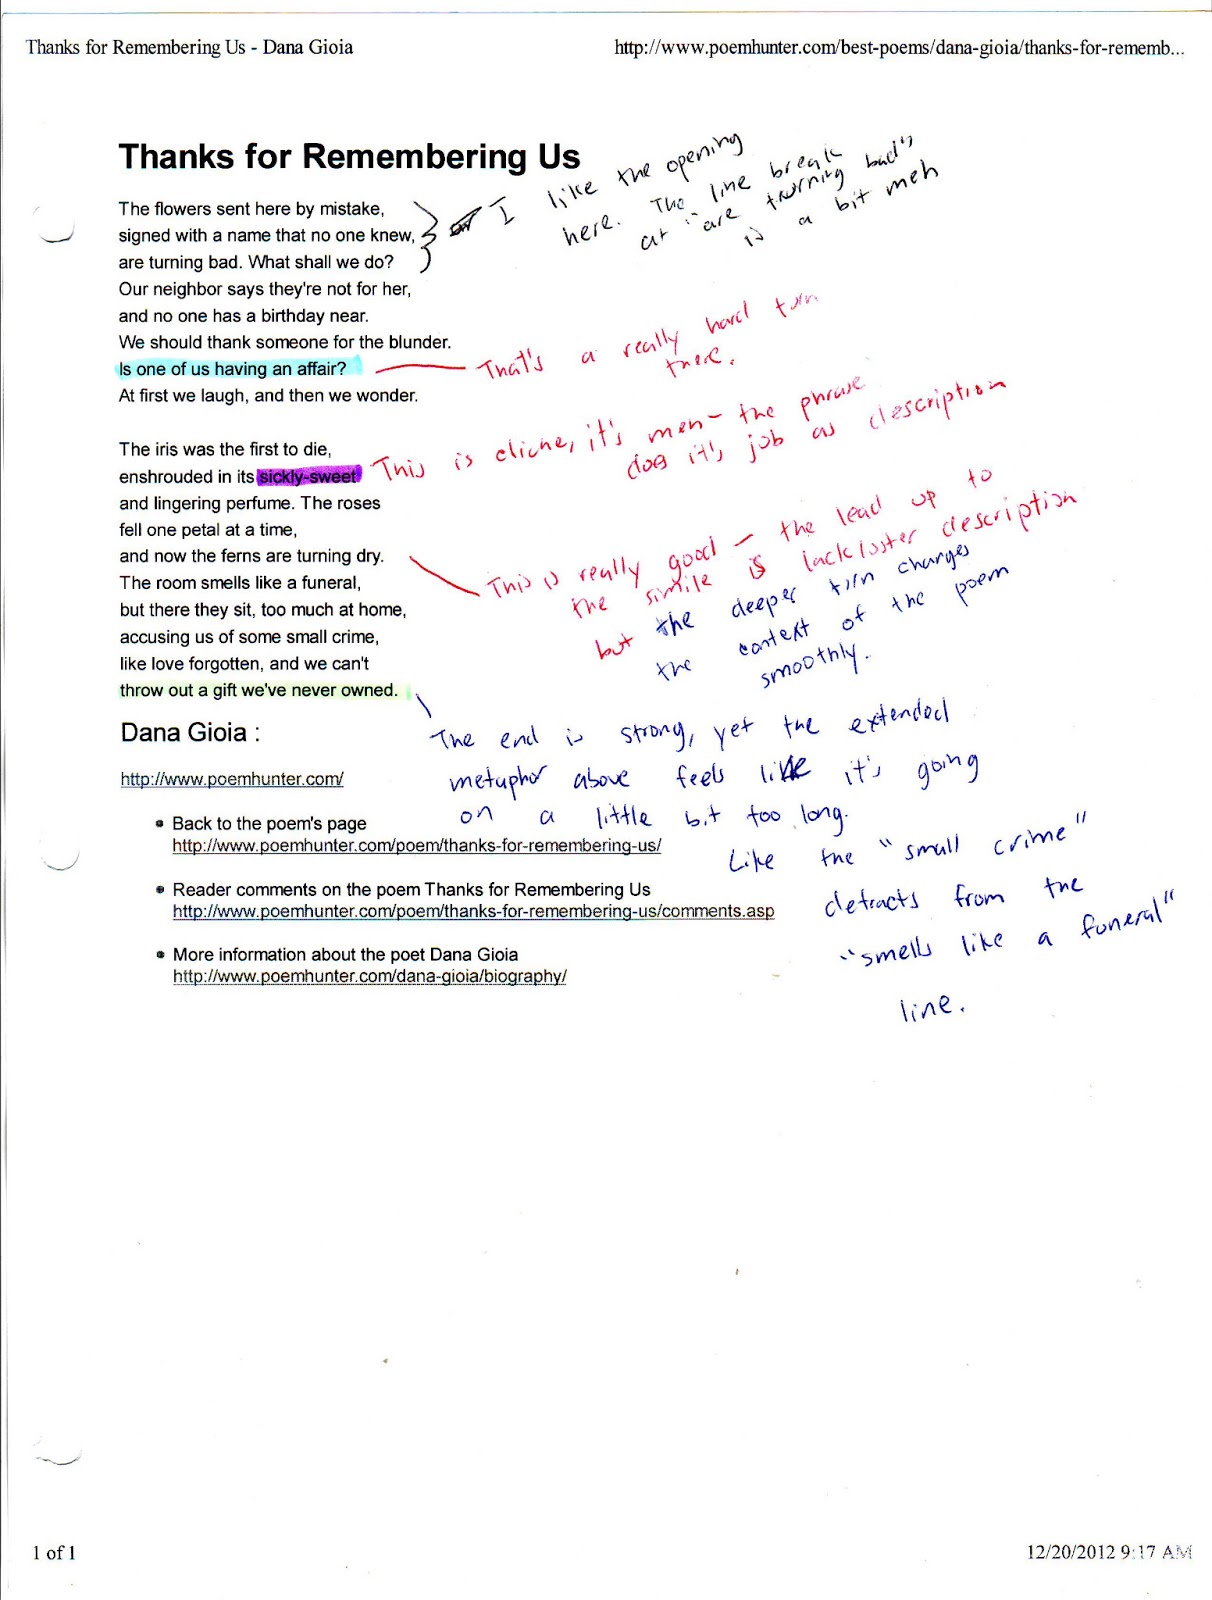 Thanks for Remembering Us - Dana Gioia
http://www.poemhunter.com/best-poems/dana-gioia/thanks-for-rememb...
Thanks for Remembering Us
The flowers sent here by mistake,
signed with a name that no one knew,
are turning bad. What shall we do?
Our neighbor says they're not for her,
and no one has a birthday near.
We should thank someone for the blunder.
Is one of us having an affair?
At first we laugh, and then we wonder.
I like the opening
here. The line break
at "are turning bad"
is a bit meh
That's a really hard turn
there.
The iris was the first to die,
enshrouded in its sickly-sweet
and lingering perfume. The roses
fell one petal at a time,
and now the ferns are turning dry.
The room smells like a funeral,
but there they sit, too much at home,
accusing us of some small crime,
like love forgotten, and we can't
throw out a gift we've never owned.
This is cliche, it's meh - the phrase
does it's job as description
This is really good - the lead up to
the simile is lackluster description
but the deeper turn changes
the context of the poem
smoothly.
The end is strong, yet the extended
metaphor above feels like it's going
on a little bit too long.
Like the "small crime"
detracts from the
"smells like a funeral"
line.
Dana Gioia :
http://www.poemhunter.com/
• Back to the poem's page
http://www.poemhunter.com/poem/thanks-for-remembering-us/
• Reader comments on the poem Thanks for Remembering Us
http://www.poemhunter.com/poem/thanks-for-remembering-us/comments.asp
• More information about the poet Dana Gioia
http://www.poemhunter.com/dana-gioia/biography/
1 of 1
12/20/2012 9:17 AM